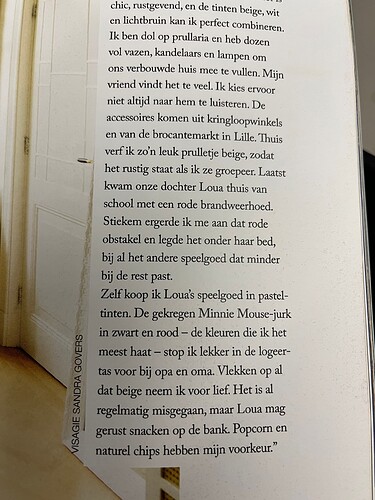 chic, rustgevend, en de tinten beige, wit
en lichtbruin kan ik perfect combineren.
Ik ben dol op prullaria en heb dozen
vol vazen, kandelaars en lampen om
ons verbouwde huis mee te vullen. Mijn
vriend vindt het te veel. Ik kies ervoor
niet altijd naar hem te luisteren. De
accessoires komen uit kringloopwinkels
en van de brocantemarkt in Lille. Thuis
verf ik zo’n leuk prulletje beige, zodat
het rustig staat als ik ze groepeer. Laatst
kwam onze dochter Loua thuis van
school met een rode brandweerhoed.
Stiekem ergerde ik me aan dat rode
obstakel en legde het onder haar bed,
bij al het andere speelgoed dat minder
bij de rest past.
Zelf koop ik Loua’s speelgoed in pastel-
tinten. De gekregen Minnie Mouse-jurk
in zwart en rood – de kleuren die ik het
meest haat – stop ik lekker in de logeer-
tas voor bij opa en oma. Vlekken op al
dat beige neem ik voor lief. Het is al
regelmatig misgegaan, maar Loua mag
gerust snacken op de bank. Popcorn en
naturel chips hebben mijn voorkeur.”
VISAGIE SANDRA GOVERS